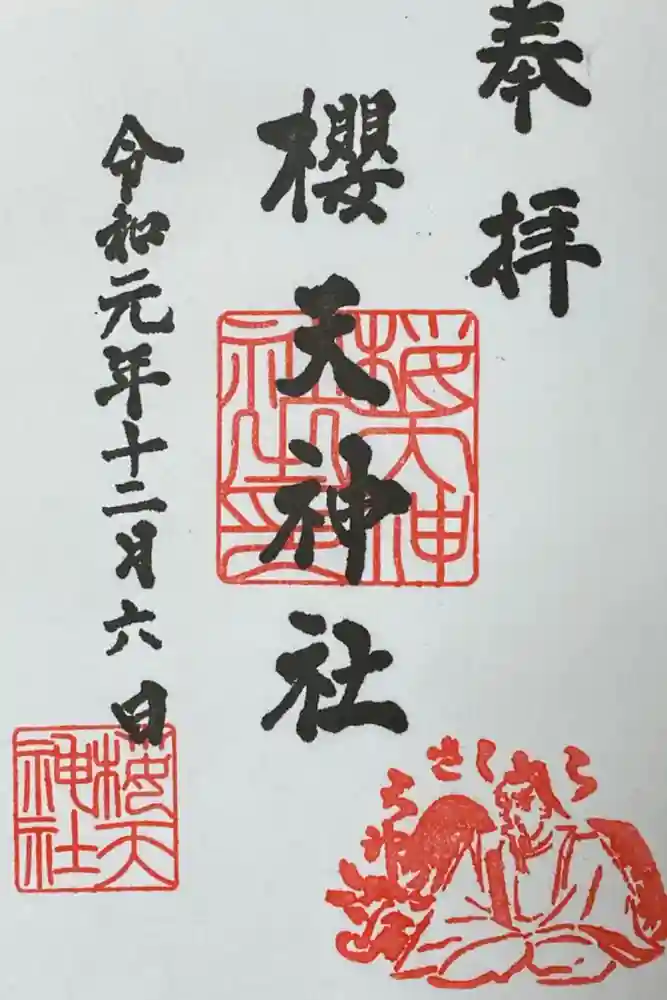 奉拝
櫻天神社
令和元年十二月六日
桜天神社印
桜天神社
さくら